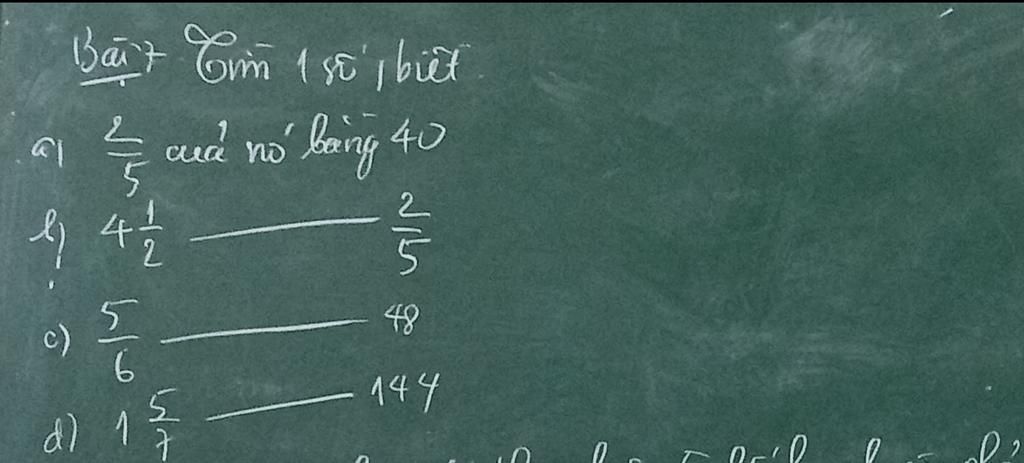 Bài 7 Tìm 1 số, biết
a) 2/5 của nó bằng 40
b) 4 1/2 ——— 2/5
c) 5/6 ——— 48
d) 1 5/7 ——— 144